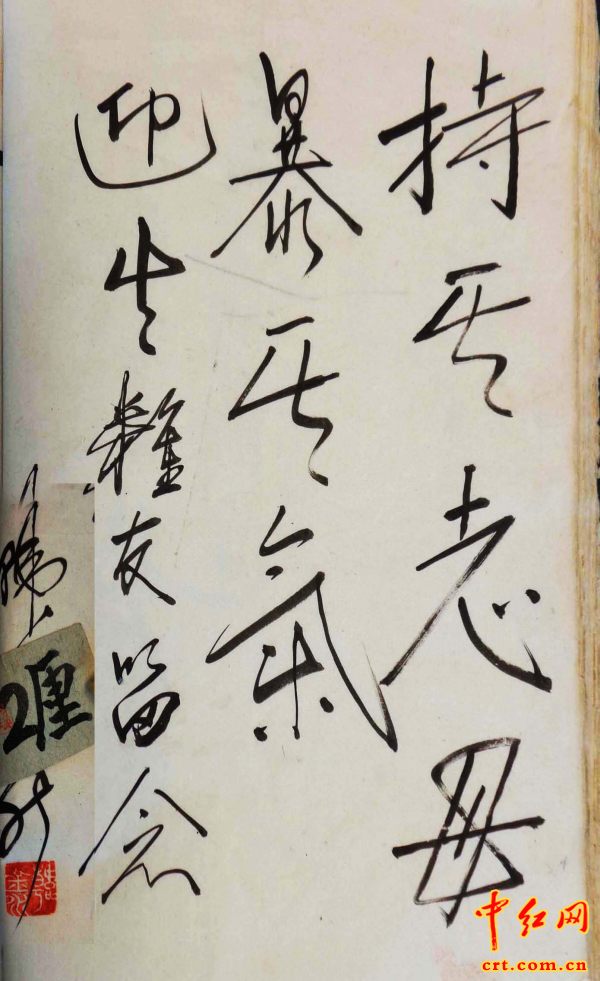 持其志毋
暴其氣
迎生難友留念
2厘
中红网
crt.com.cn